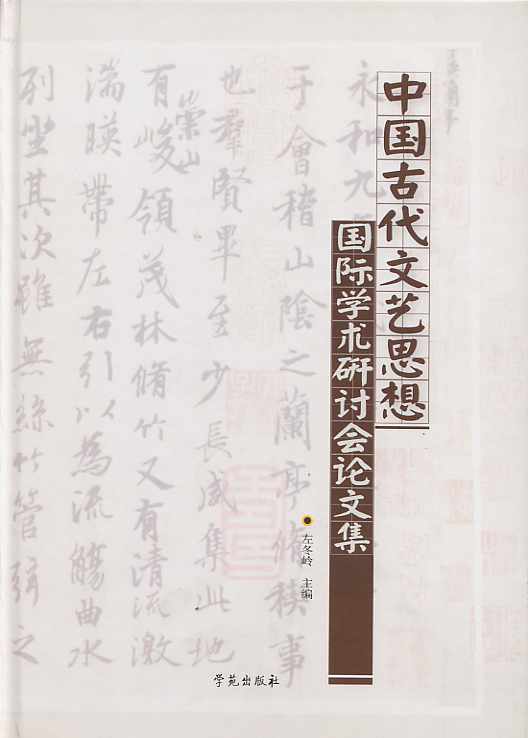 中国古代文艺思想
国际学术研讨会论文集
左冬岭 主编
学苑出版社
永和九
于會稽山陰之蘭亭脩禊事
也羣賢畢至少長咸集此地
崇山
有峻領茂林脩竹又有清流激
湍暎帶左右引以為流觴曲水
列坐其次雖無絲竹管弦之